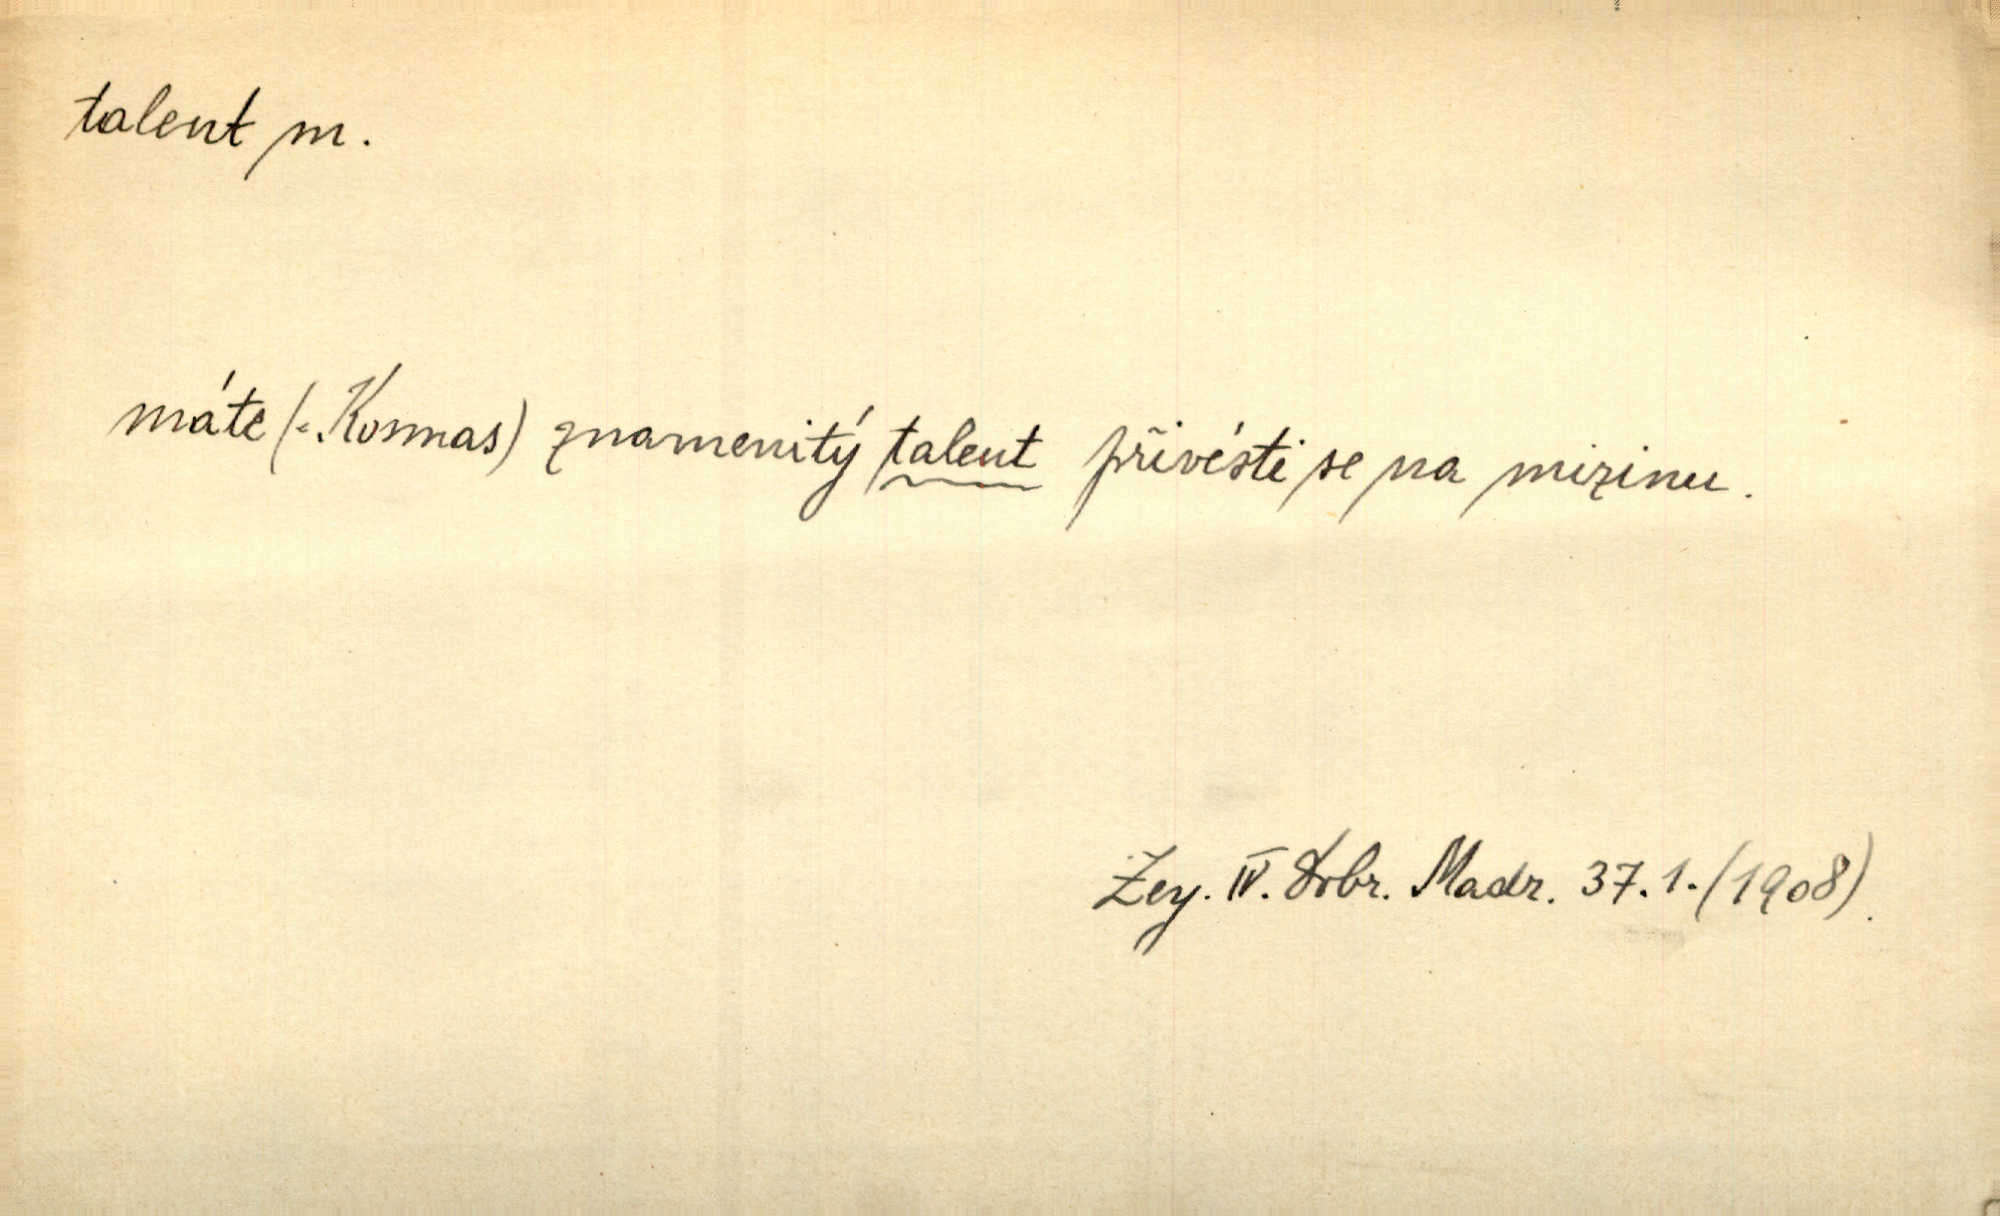 talent m.
máte (=. Kosmas) znamenitý talent přivésti se na mizinu.
Zey. IV. Dobr. Madr. 37.1. (1908).